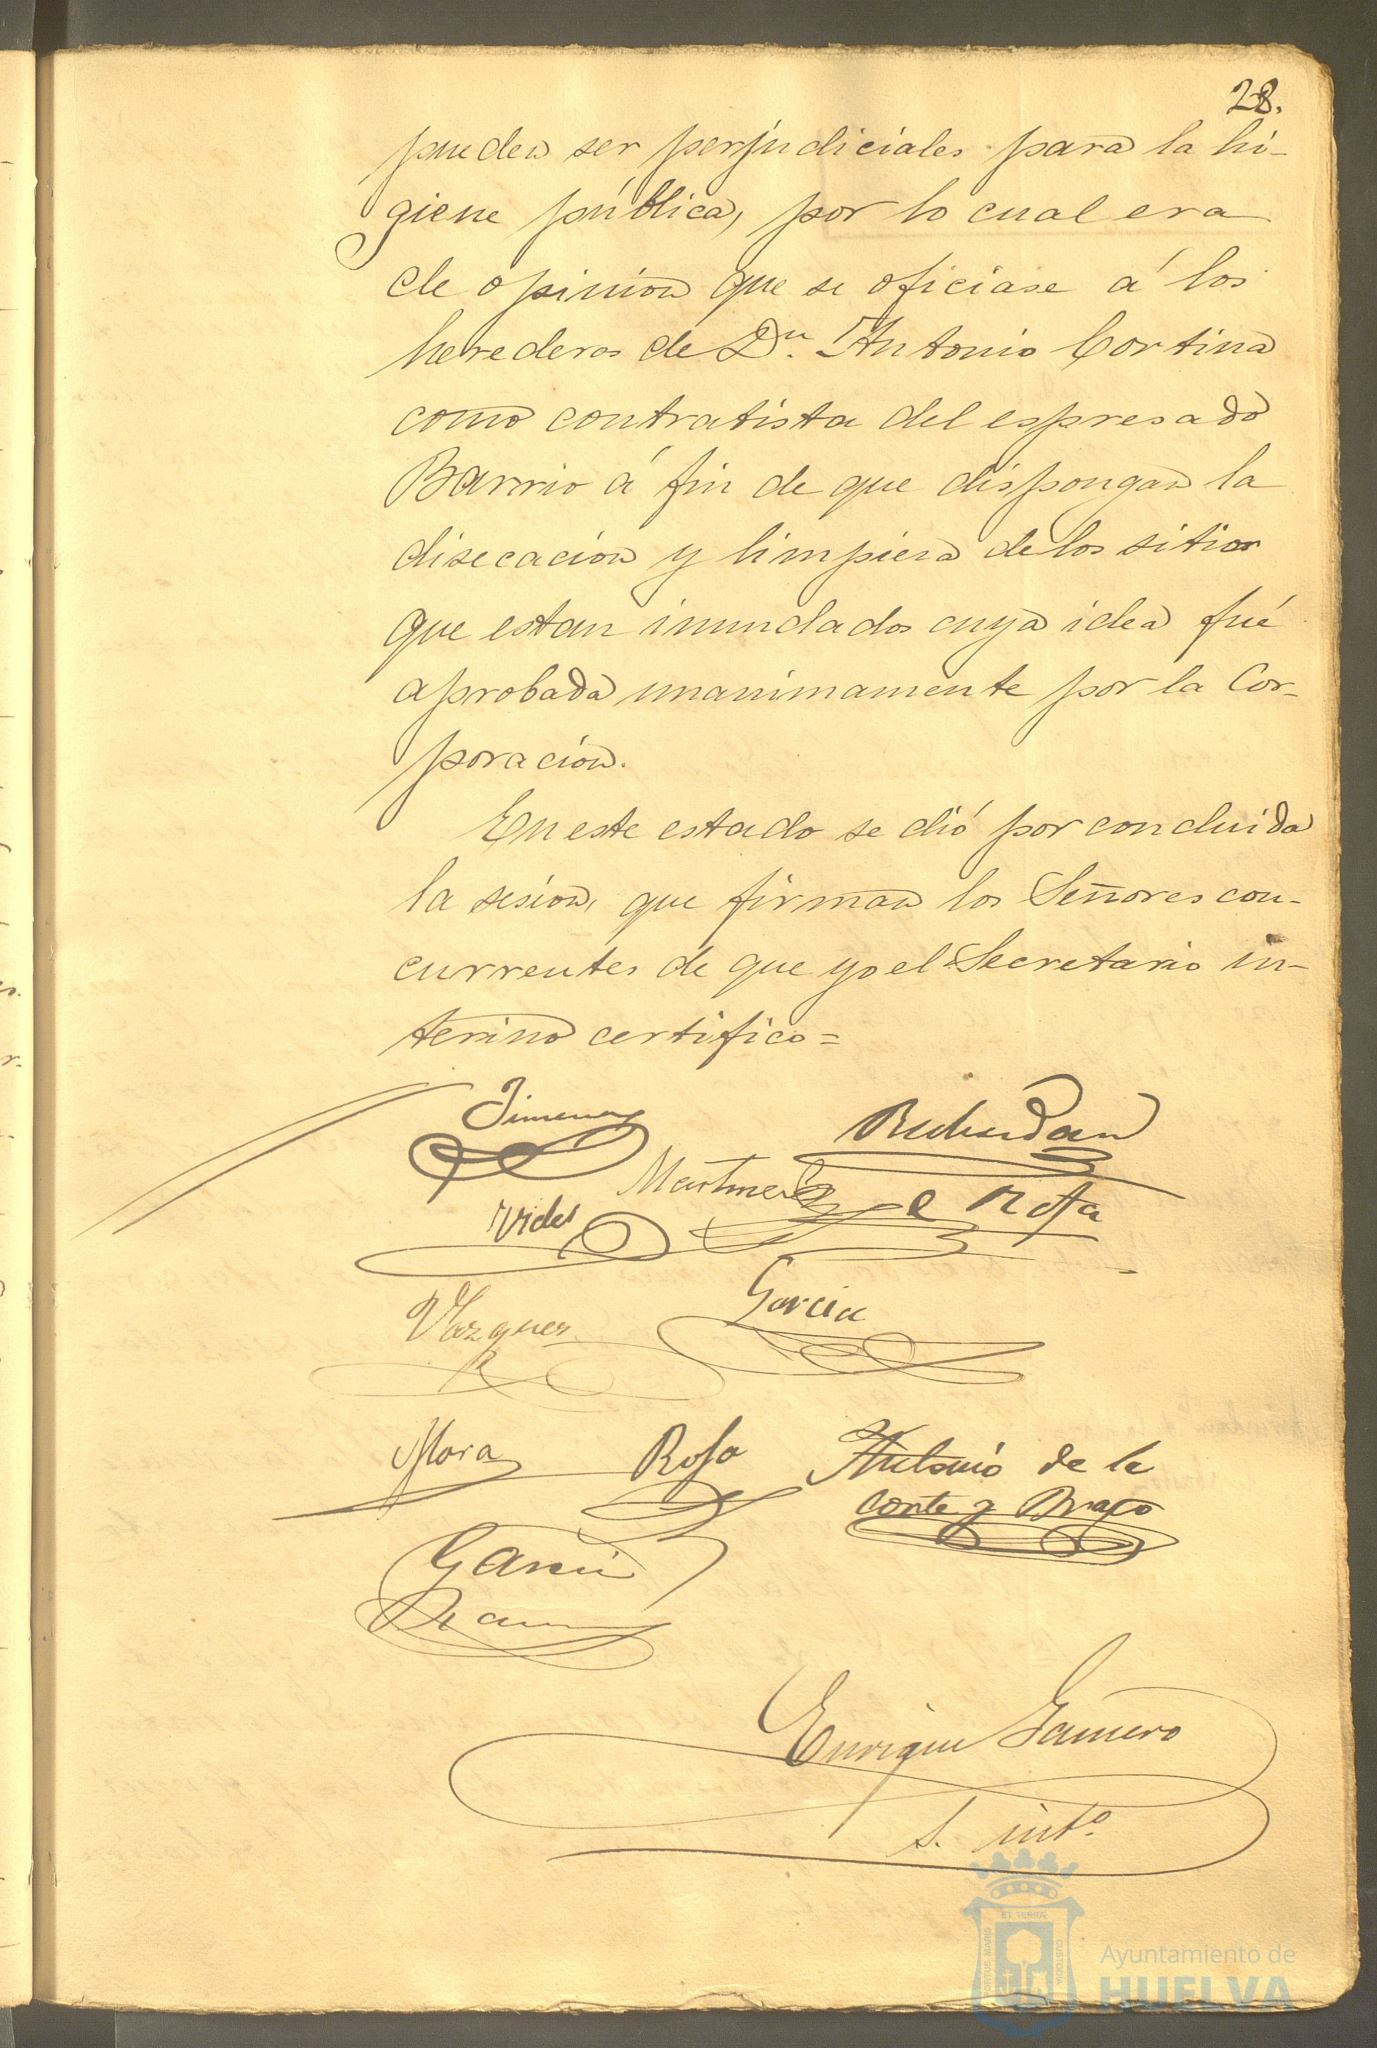 28.
pueden ser perjudiciales para la hi-
giene pública, por lo cual era
de opinion que se oficiase á los
herederos de Dn. Antonio Cortina
como contratista del espresado
Barrio á fin de que dispongan la
disecación y limpieza de los sitios
que estan inundados cuya idea fué
aprobada unanimamente por la Cor-
poración.
En este estado se dió por concluida
la sesion, que firman los Señores con-
currentes de que yo el Secretario in-
terino certifico=
Jimenez
Martinez
Vides
Vazquez
Garcia
Mora
Rofa
Antonio de la
Corte y Bravo
Garcia
Ramos
Enrique Gamero
S. intº.
PORTUS MARIS ET TERRAE CUSTODIA
Ayuntamiento de
HUELVA